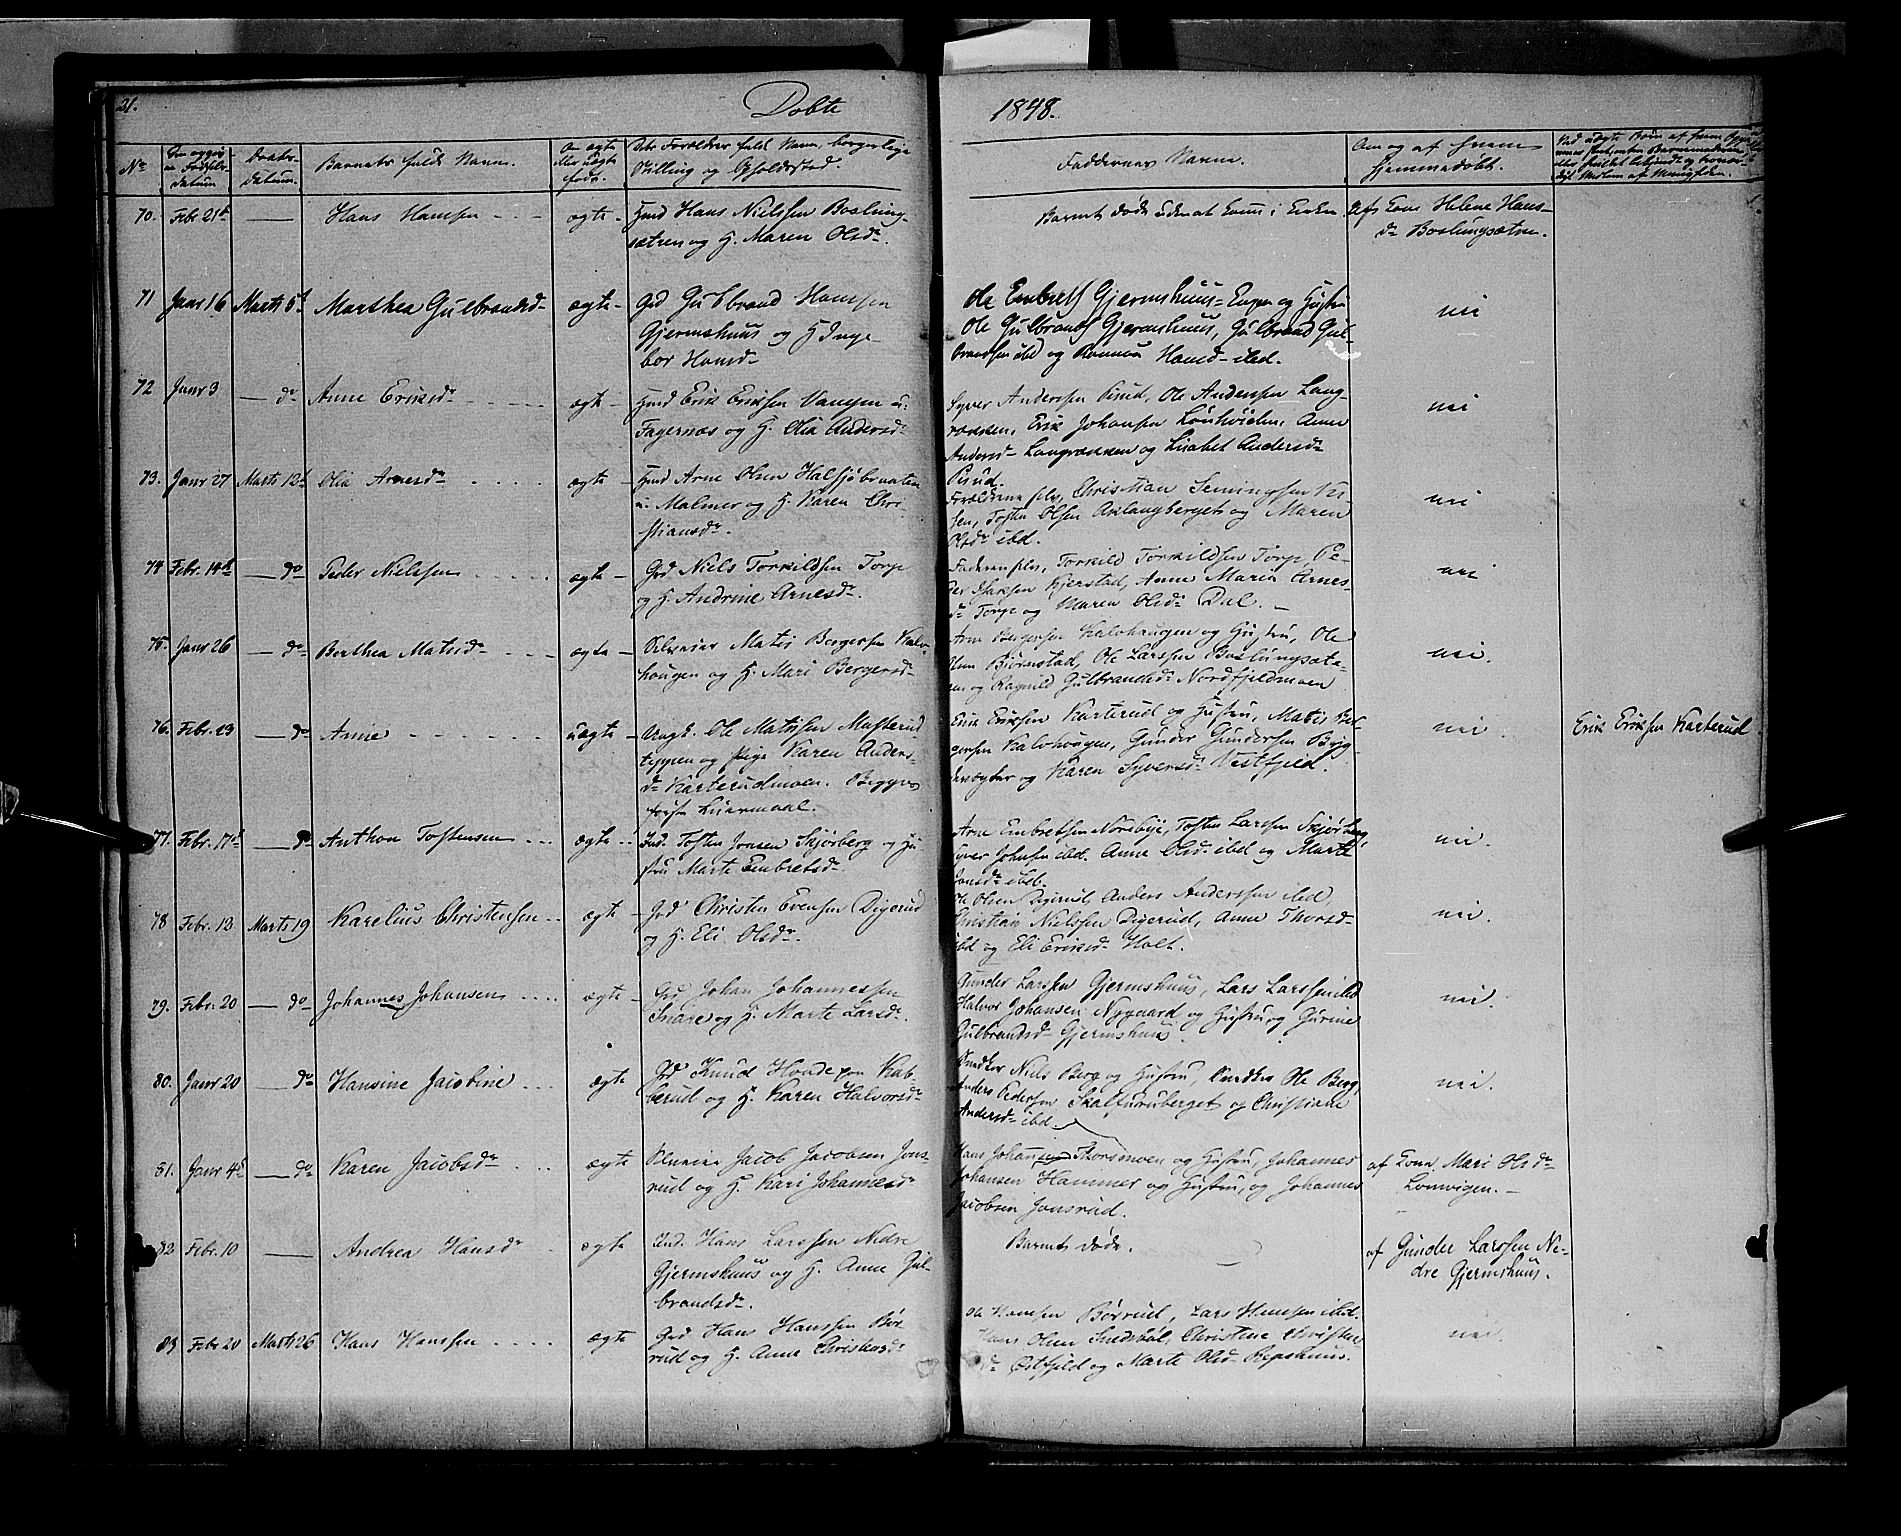 21.
Døbte
1848.
No
Barnets fulde Navn.
Daabs-
datum.
Faddernes Navne.
Om og af hvem
hjemmedøbt.
70. Febr 21de — Hans Hansen ægte Hmd Hans Nielsen Boslung-
sætren og H. Maren Olsdr.
Barnet døde uden at komme i Kirken
af Kone Helene Hans-
dr Boslungsætren.
71 Janr 16 Marts 5te Marthea Gulbrandsd ægte Grd Gulbrand Hansen
Gjermshuus og H Inge-
bor Hansd
Ole Embretsen Gjermshuus Enge og Hustru
Ole Gulbrands Gjermshuus, Gulbrand Gul-
brandsen ibd og Hansd ibd.
nei
72 Janr 3 — do Anne Eriksdr ægte Hmd Erik Eriksen u.
Fagernæs og H. Olia Andersdr
Syver Andersen Rud, Ole Andersen Lang-
rækken, Erik Johansen Anne
Andersdr Langrækken og Lisabet Andersdr
Rud.
nei
73. Janr 27 Marts 12te Olia Arnesdr ægte Hmd Arne Olsen Halsjøbraaten
u. Malmer og H. Karen Chri-
stiansdr.
Forældrene selv, Christian Semingsen
Tosten Olsen Aslangberget og Maren
Olsdr ibd.
nei
74 Febr. 14de — do Peder Nielsen ægte Grd Niels Torkildsen Torp
og H. Andrine Arnesdr.
Faderen selv, Torkild Torkildsen Torp, Pe-
der Isaksen Kjerstad, Anne Maria Arnes-
dr Torp og Maren Olsdr Dal.
nei
75. Janr 26 — do Berthea Matisdr ægte Matis Bergersen Kalv-
hougen og H. Mari Bergersdr
Arne Bergersen Kalvhaugen og Hustru, Ole
Olsen Bjørnstad, Ole Larsen Boslungsæte-
ren og Ragnild Gulbrandsdr Nordfjeldmoen
nei.
76. Febr. 13 — do Anne uægte Ungk. Ole Matisen Masterud
teppen og Pige Karen Anders-
dr Karterudmoen. Begges
første Leiermaal.
Erik Eriksen Karterud og Hustru, Matis Ber-
gersen Kalvhougen, Gunder Gundersen Bryg-
og Karen Syversdr Vestfjeld.
nei.
Erik Eriksen Karterud
77. Febr. 17de — do Anthon Tostensen ægte Ind. Tosten Jonsen Skjørberg og Hu-
stru Marte Embretsdr
Arne Embretsen Norebye, Tosten Larsen Skjørberg,
Syver Johnsen ibd. Anne Olsdr ibd og Marte
Jonsdr ibd.
nei.
78 Febr. 12 Marts 19 Karelius Christensen ægte Grd Christen Evensen Digerud
og H. Eli Olsdr.
Ole Olsen Digerud, Anders Andersen ibd,
Christian Nielsen Digerud, Anne Thorsd-
ibd og Eli Eriksdr Holt.
nei.
79. Febr. 20 — do Johannes Johansen ægte Grd Johan Johannessen
Snare og H. Marte Larsdr.
Gunder Larsen Gjermshuus, Lars Larsen ibd
Halvor Johansen Nygaard og Hustru og Gurine
Gulbrandsdr Gjermshuus.
nei.
80. Janr 20 — do Hansine Jacobine ægte Grd Knud Hovde paa Kab-
berud og H. Karen Halvorsdr
Niels Berg og Hustru, Ole Berg,
Anders Pedersen Skatturuberget og Christiane
Andersdr ibd.
nei.
81. Janr 4de — do Karen Jacobsdr ægte Jacob Jacobsen Jons-
rud og H. Kari Johannesdr
Hans Johansen Thorsmoen og Hustru, Johannes
Johansen Hammer og Hustru, og Johannes
Jacobsen Jonsrud.
af Kone Mari Olsdr
Lonvigen.
82 Febr. 10 — Andrea Hansdr ægte Ind. Hans Larsen Nedre
Gjermshuus og H. Anne Gul-
brandsdr.
Barnet døde.
af Gunder Larsen Ne-
dre Gjermshuus.
83 Febr 20 Marts 26 Hans Hansen ægte Grd Hans Hansen Bør-
rud og H. Anne Christensdr
Ole Hansen Børrud, Lars Hansen ibd.
Hans Olsen Snedsbøl, Christine Christens-
dr Østfjeld og Marte Olsdr Repshuus.
nei.